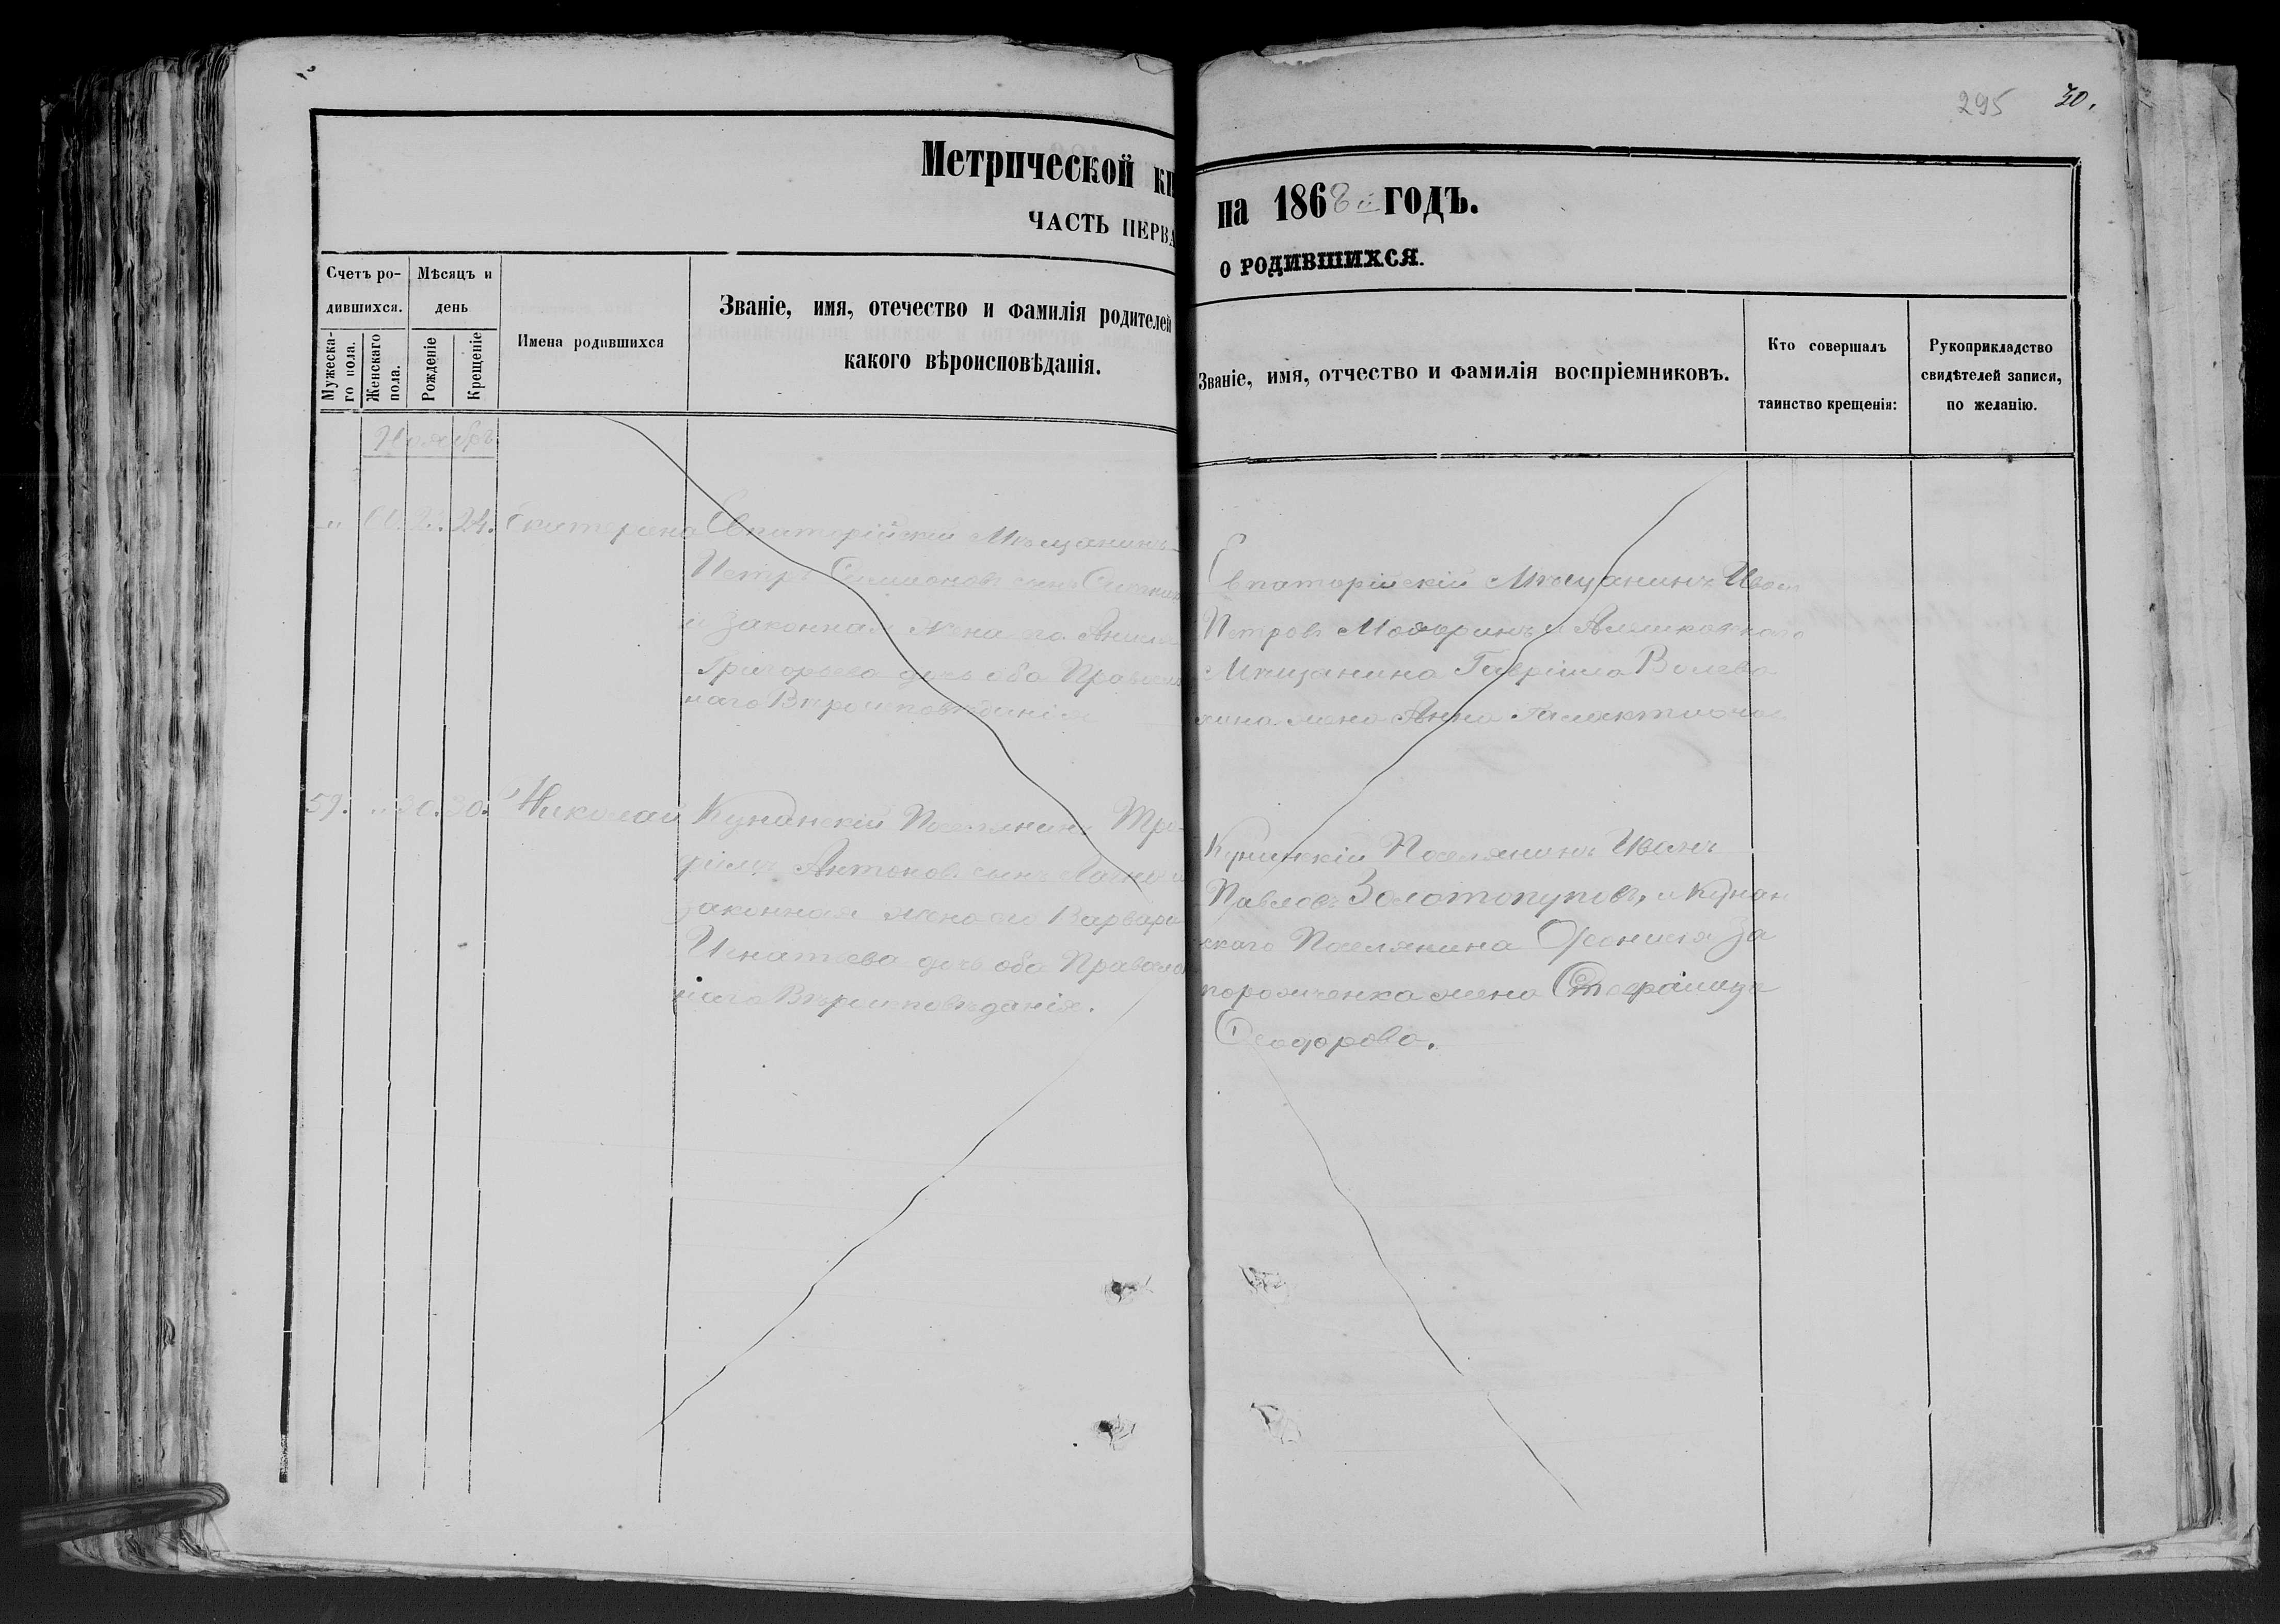 295 30.
Метрической кн
ЧАСТЬ ПЕРВА
на 1868й ГОДЪ.
о РОДИВШИХСЯ.
Счетъ ро-
дившихся.
Мужеска-
го пола.
Женскаго
пола.
Мѣсяцъ и
день
Рожденіе
Крещеніе
Имена родившихся
Званіе, имя, отечество и фамилія родителей
какого вѣроисповѣданія.
Званіе, имя, отчество и фамилія воспріемниковъ.
Кто совершалъ
таинство крещенія:
Рукоприкладство
свидѣтелей записи,
по желанію.
Ноябрь
" 24. Екатерина Евпаторійскій Мѣщанинъ
Петръ сынъ
и законная жена его
Григорьева дочь оба Правосла
наго Вѣроисповѣданія
Евпаторійскій Мѣщанинъ Иван
Петровъ и
Мѣщанина Гавріила
жена Анна
59. " 30. 30. Николай Кунанскій Поселянинъ Тро-
фимъ Антоновъ сынъ и
законная жена его Варвара
Игнатьева дочь оба Правосла
наго Вѣроисповѣданія.
Кунанскій Поселянинъ Иванъ
Павловъ Золотопуповъ, и Кунан
скаго Поселянина За
порожченка жена
Феодорова.